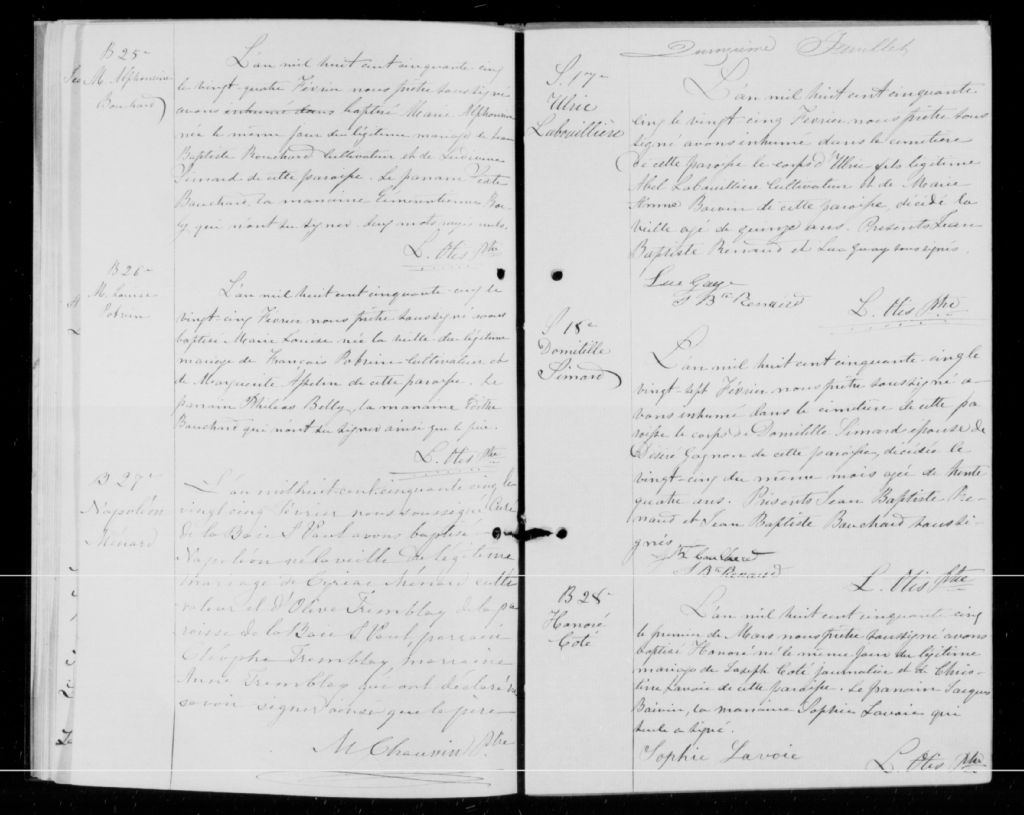 B 25e
M. Alphonsine
Bouchard
L'an mil huit cent cinquante cinq
le vingt quatre Février nous prêtre soussigné
avons inhumé dans baptisé Marie Alphonsine
née le même jour du légitime mariage de Jean
Baptiste Bouchard Cultivateur et de
Simard de cette paroisse. Le parrain
Bouchard, la marraine
qui n'ont su signer. deux mots rayés nuls.
L. Otis Ptre
B 26e
M. Louise
Potvin
L'an mil huit cent cinquante cinq le
vingt-cinq Février nous prêtre soussigné avons
baptisé Marie Louise née la veille du légitime
mariage de François Potvin Cultivateur et
de Marguerite de cette paroisse. Le
parrain Philéas Belley, la marraine
Bouchard qui n'ont su signer ainsi que le père.
L. Otis Ptre
B 27e
Napoléon
Ménard
L'an mil huit cent cinquante cinq le
vingt cinq Fevrier nous soussigné Curé
de la Baie St Paul avons baptisé
Napoléon né la veille du légitime
mariage de Cyriac Ménard culti
vateur et d'Olive Tremblay de la pa
roisse de la Baie St Paul parrain
Cléophe Tremblay marraine
Anne Tremblay qui ont déclaré ne
savoir signer ainsi que le père
M Chauvin Ptre
Feuillet
S. 17e
Ulric
Labouillière
L'an mil huit cent cinquante
cinq le vingt cinq Février nous prêtre sous
signé avons inhumé dans le cimetière
de cette paroisse le corps d'Ulric fils légitime
Abel Labouillière Cultivateur et de Marie
Boivin de cette paroisse, décédé la
veille agé de quinze ans. Presents Jean
Baptiste Renaud et Luc Guay soussignés.
Luc Gaye
J Bte Renaud
L. Otis Ptre
S 18e
Domitille
Simard
L'an mil huit cent cinquante-cinq le
vingt-sept Février nous prêtre soussigné a-
vons inhumé dans le cimetière de cette pa
roisse le corps de Domitille Simard épouse de
Désiré Gagnon de cette paroisse, décédée le
vingt-cinq du même mois agé de trente
quatre ans. Présents Jean Baptiste Re-
naud et Jean Baptiste Bouchard soussi-
gnés
J Bte Renaud
L. Otis Ptre
B 28e
Honoré
Coté
L'an mil huit cent cinquante cinq
le premier de Mars nous prêtre soussigné avons
baptisé Honoré né le même jour du légitime
mariage de Joseph Coté journalier et de Chris-
tine Lavoie de cette paroisse. Le parrain Jacques
Boivin, la marraine Sophie Lavoie qui
seule a signé.
Sophie Lavoie
L. Otis Ptre